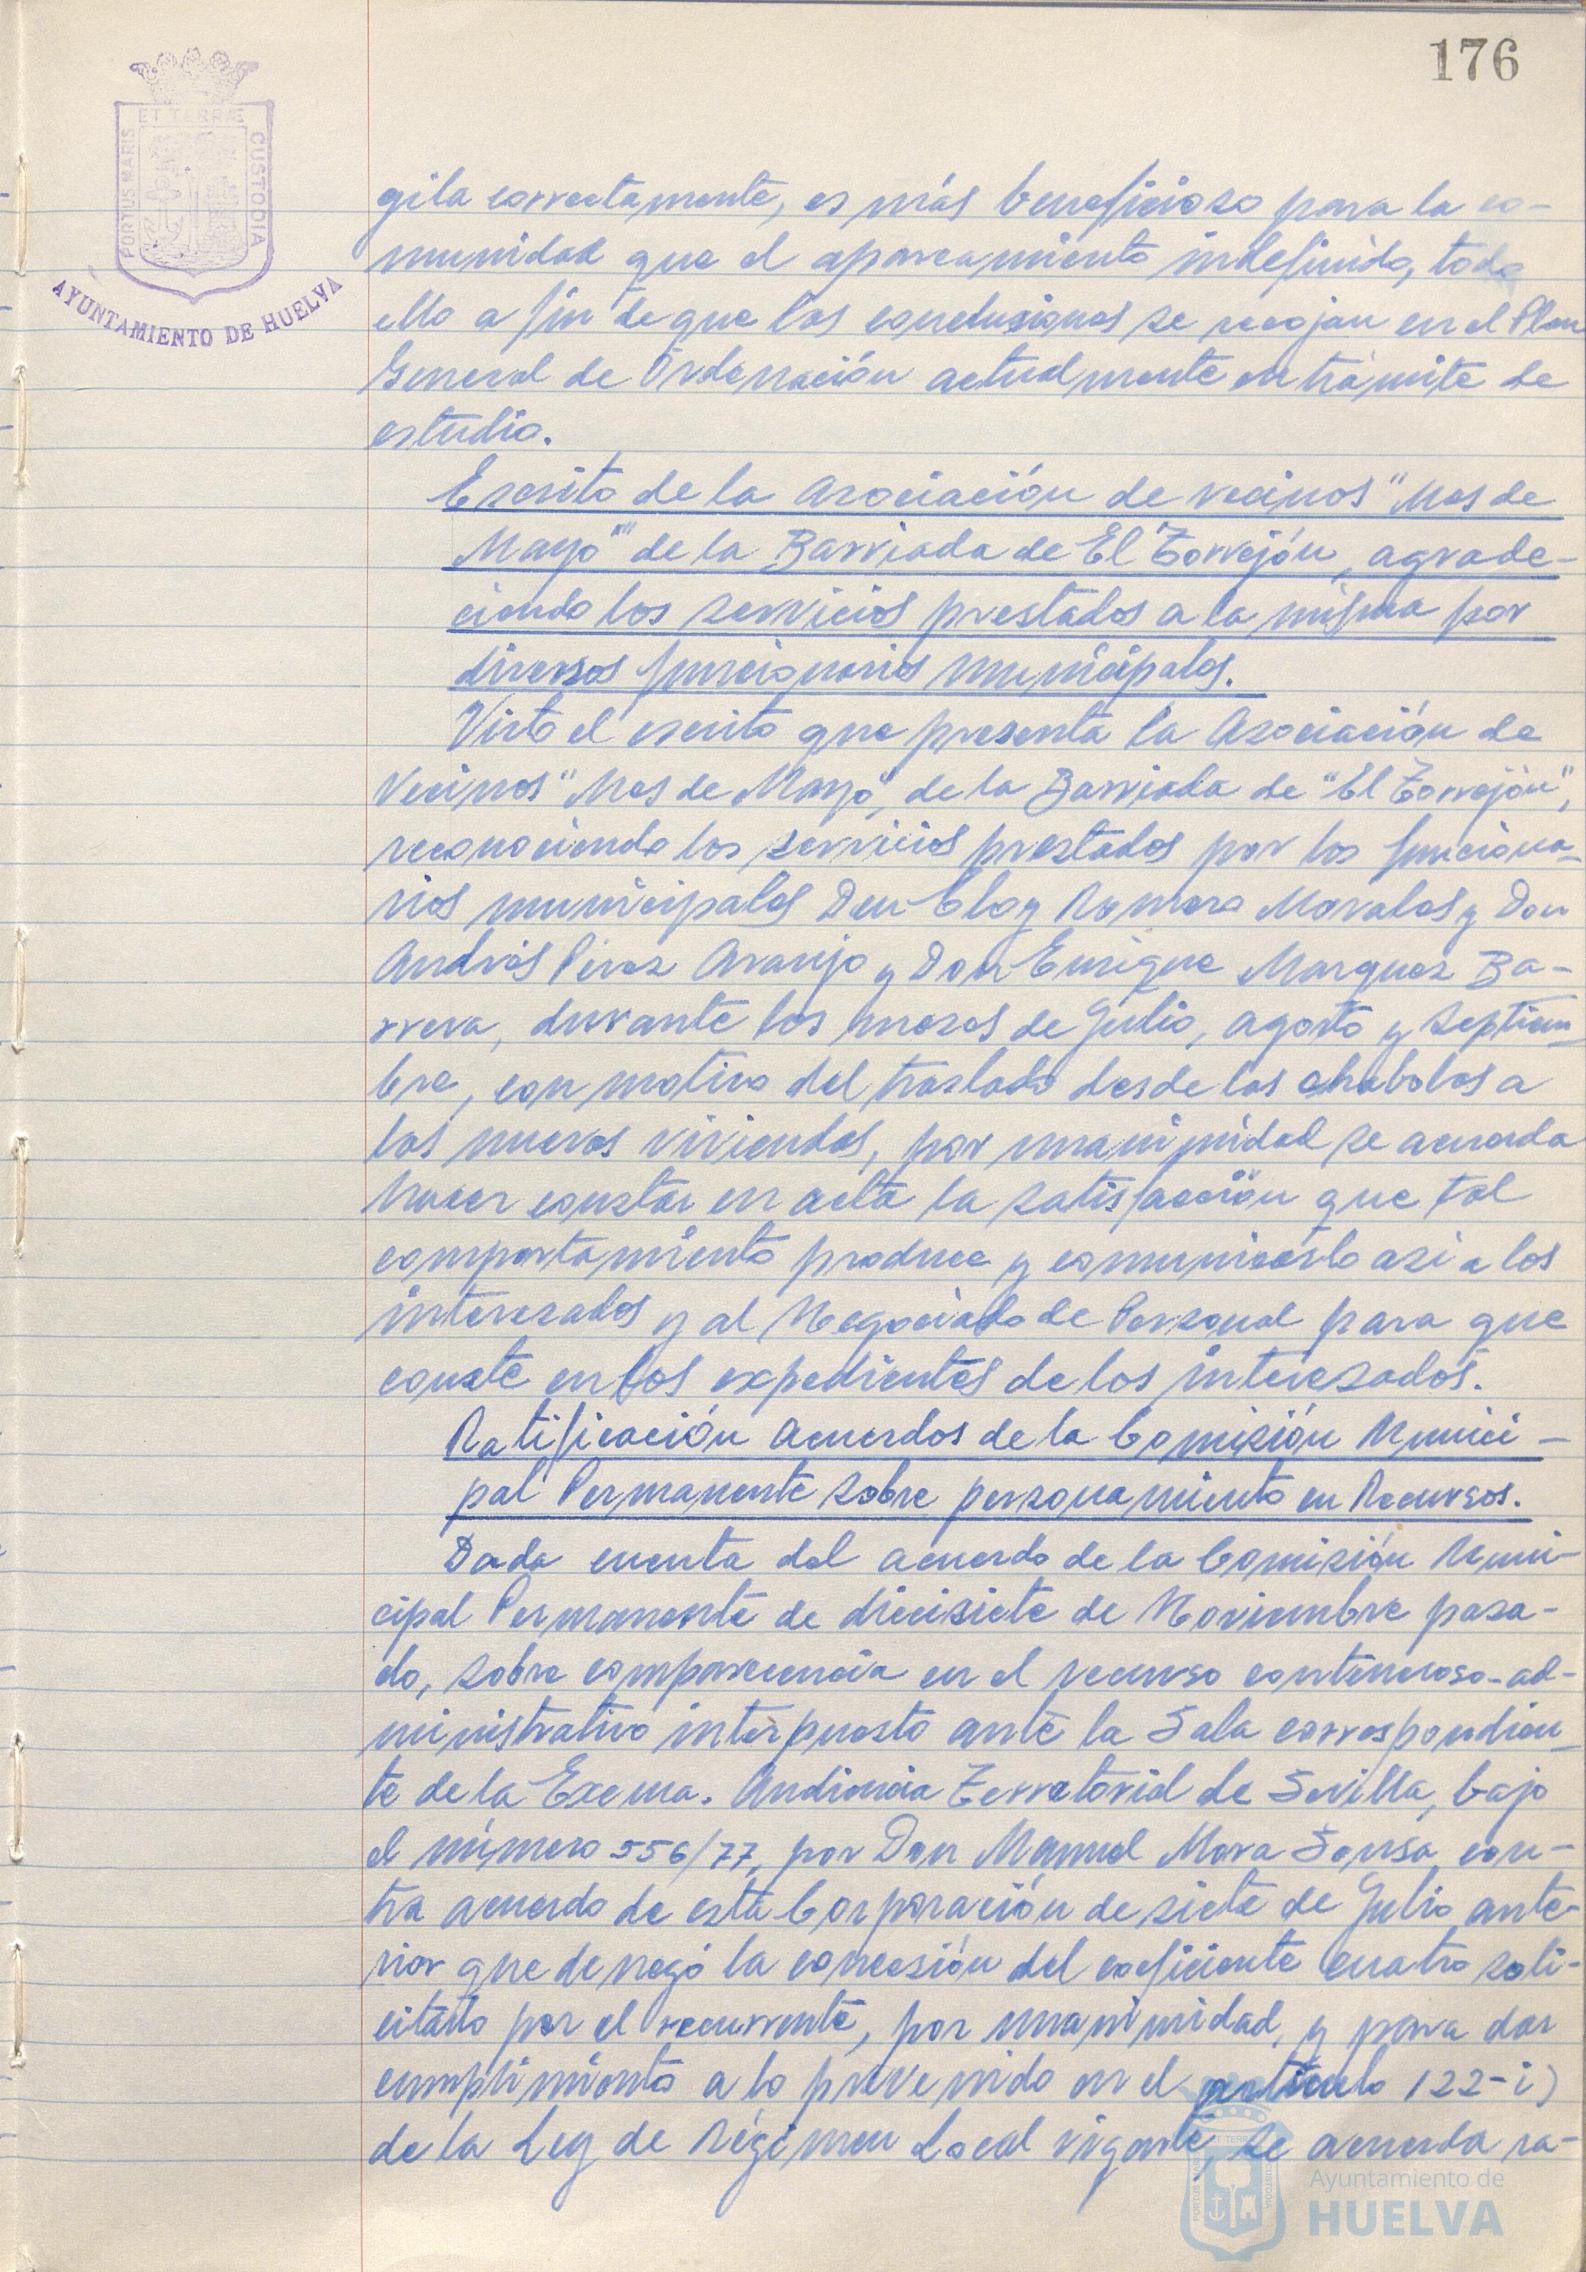 176
ET TERRÆ
PORTUS MARIS
CUSTODIA
AYUNTAMIENTO DE HUELVA
gila correctamente, es más beneficioso para la co-
munidad que el aparcamiento indefinido, todo
ello a fin de que las conclusiones se recojan en el Plan
General de Ordenación actualmente en trámite de
estudio.
Escrito de la Asociación de vecinos "Mes de
Mayo" de la Barriada de El Torrejón, agrade-
ciendo los servicios prestados a la misma por
diversos funcionarios municipales.
Visto el escrito que presenta la Asociación de
Vecinos "Mes de Mayo", de la Barriada de "El Torrejón",
reconociendo los servicios prestados por los funciona-
rios municipales Don Eloy Romero Morales y Don
Andrés Pérez Araujo y Don Enrique Marquez Ba-
rrera, durante los meses de Julio, agosto y septiem-
bre, con motivo del traslado desde las chabolas a
las nuevas viviendas, por unanimidad se acuerda
hacer constar en acta la satisfacción que tal
comportamiento produce y comunicárlo asi a los
interesados y al Negociado de Personal para que
conste en los expedientes de los interesados.
Ratificación acuerdos de la Comisión Munici-
pal Permanente sobre personamiento en Recursos.
Dada cuenta del acuerdo de la Comisión Muni-
cipal Permanente de diecisiete de Noviembre pasa-
do, sobre comparecencia en el recurso contencioso-ad-
ministrativo interpuesto ante la Sala correspondien-
te de la Excma. Audiencia Territorial de Sevilla, bajo
el número 556/77, por Don Manuel Mora Sousa con-
tra acuerdo de esta Corporación de siete de Julio ante-
rior que denegó la concesión del coeficiente cuatro soli-
citado por el recurrente, por unanimidad, y para dar
cumplimiento a lo prevenido en el artículo 122-i)
de la Ley de Régimen Local vigente, se acuerda ra-
Ayuntamiento de
HUELVA